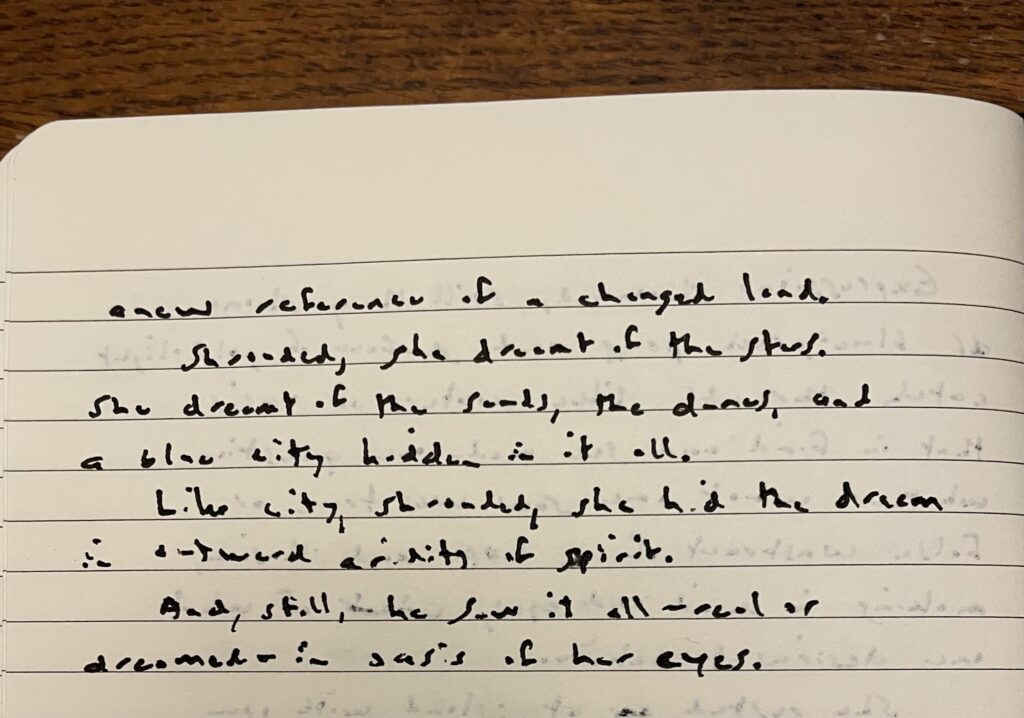 anew reference of a changed land.
Shrouded, she dreamt of the stars.
She dreamt of the sands, the dunes, and
a blue city hidden in it all.
Like city, shrouded, she hid the dream
in outward aridity of spirit.
And, still, he saw it all – real or
dreamed – in oasis of her eyes.